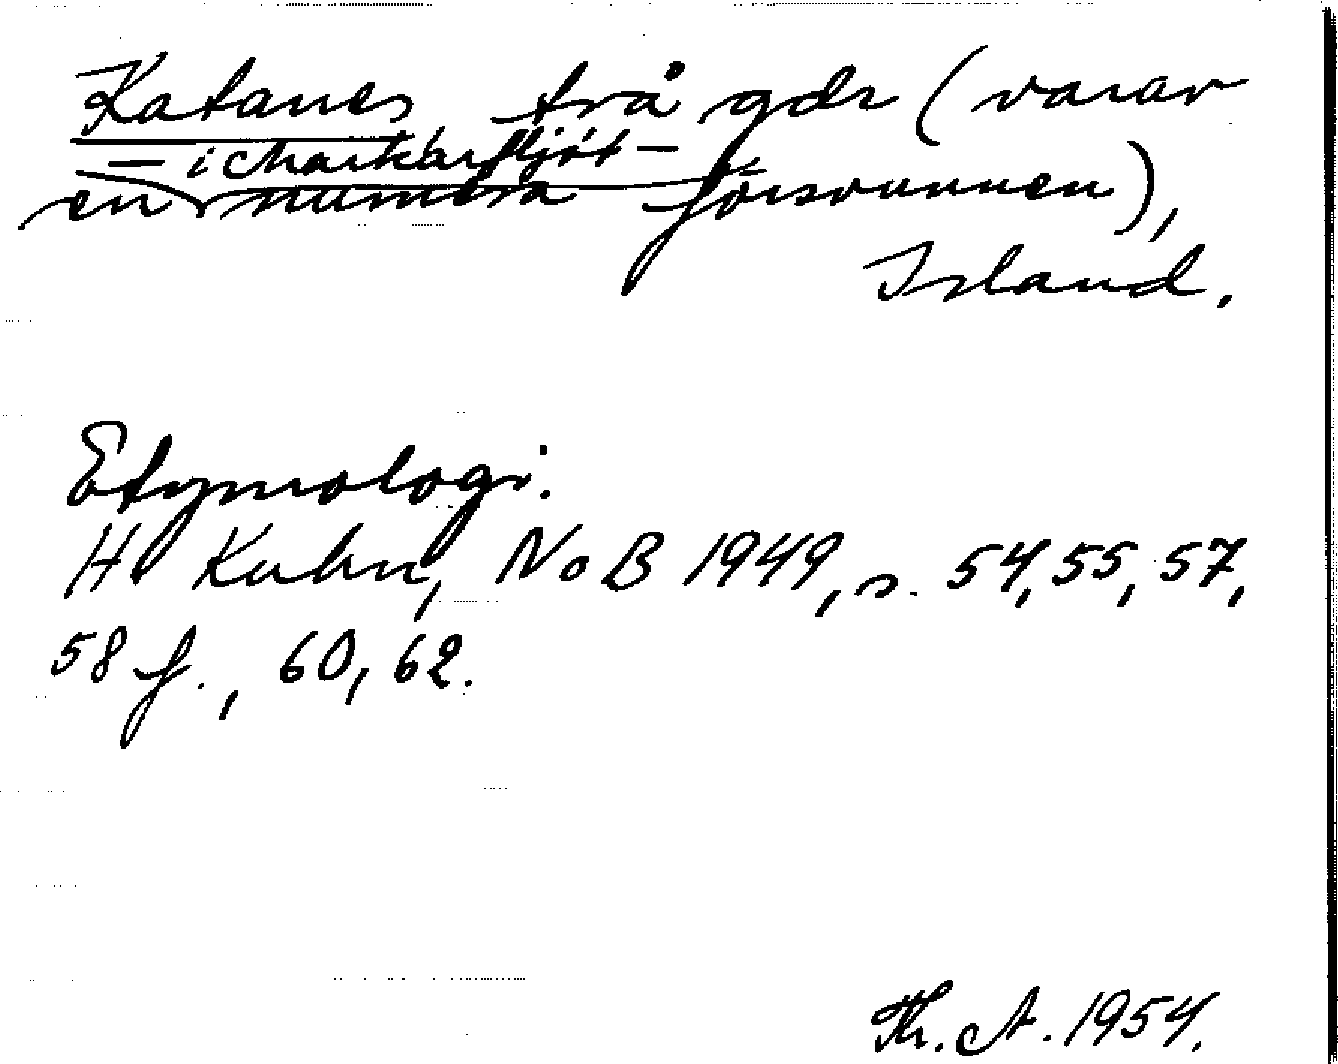 Katanes, två gdr (varav
— i Markarfljót —
en numera försvunnen),
Island.
Etymologi.
H Kuhn, NoB 1949, s. 54, 55, 57,
58 f., 60, 62.
Th. A. 1954.